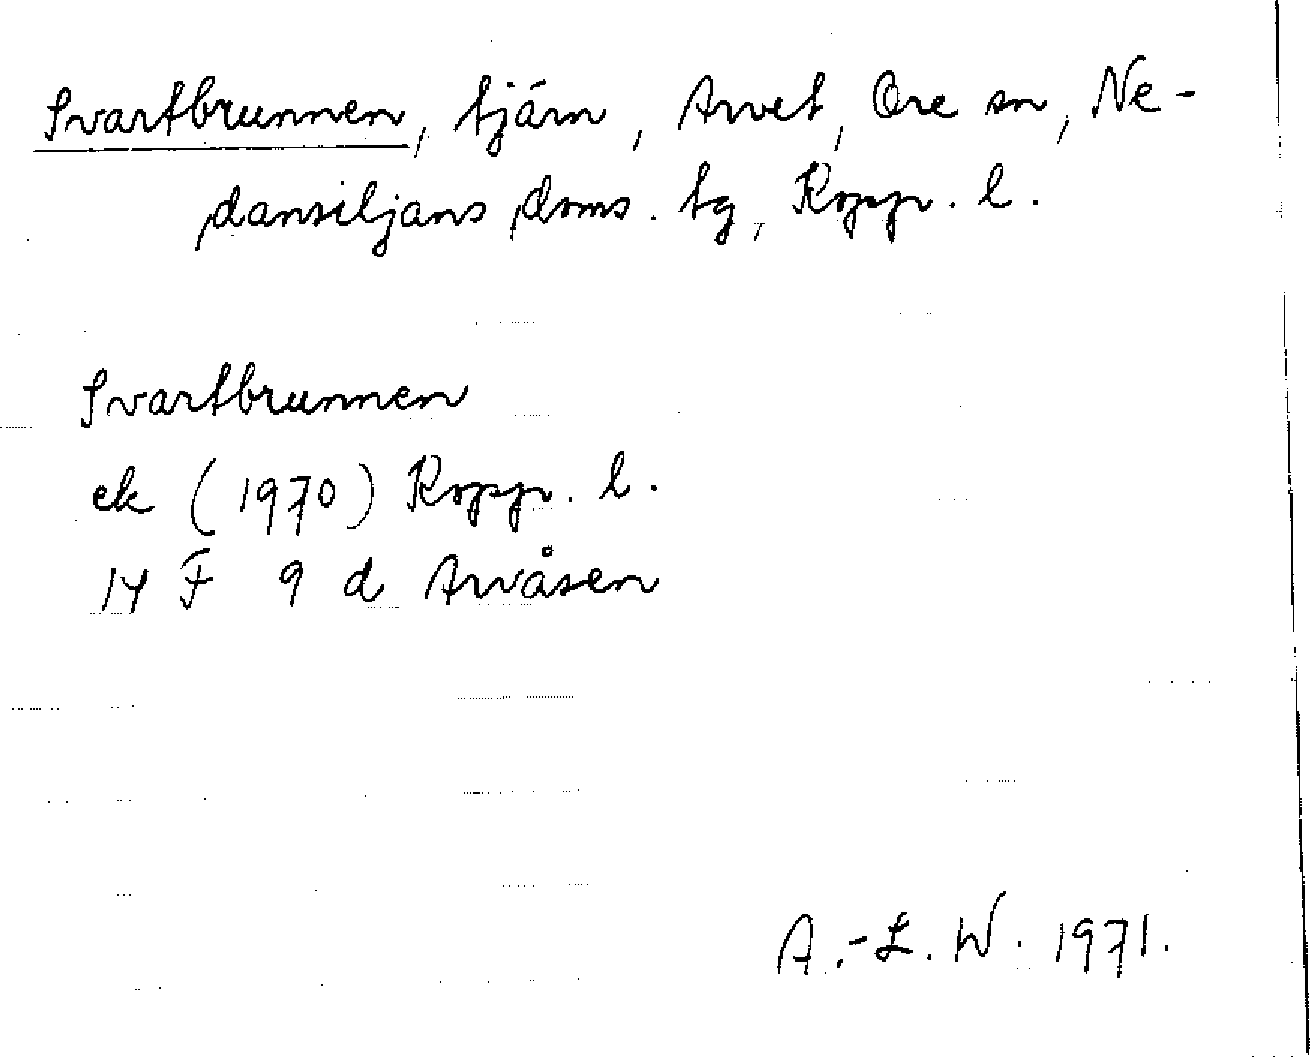 Svartbrunnen, tjärn, Arvet, Ore sn, Ne-
dansiljans doms. tg, Kopp. l.
Svartbrunnen
ek (1970) Kopp. l.
14 F 9 d Arvåsen
A.-L. W. 1971.